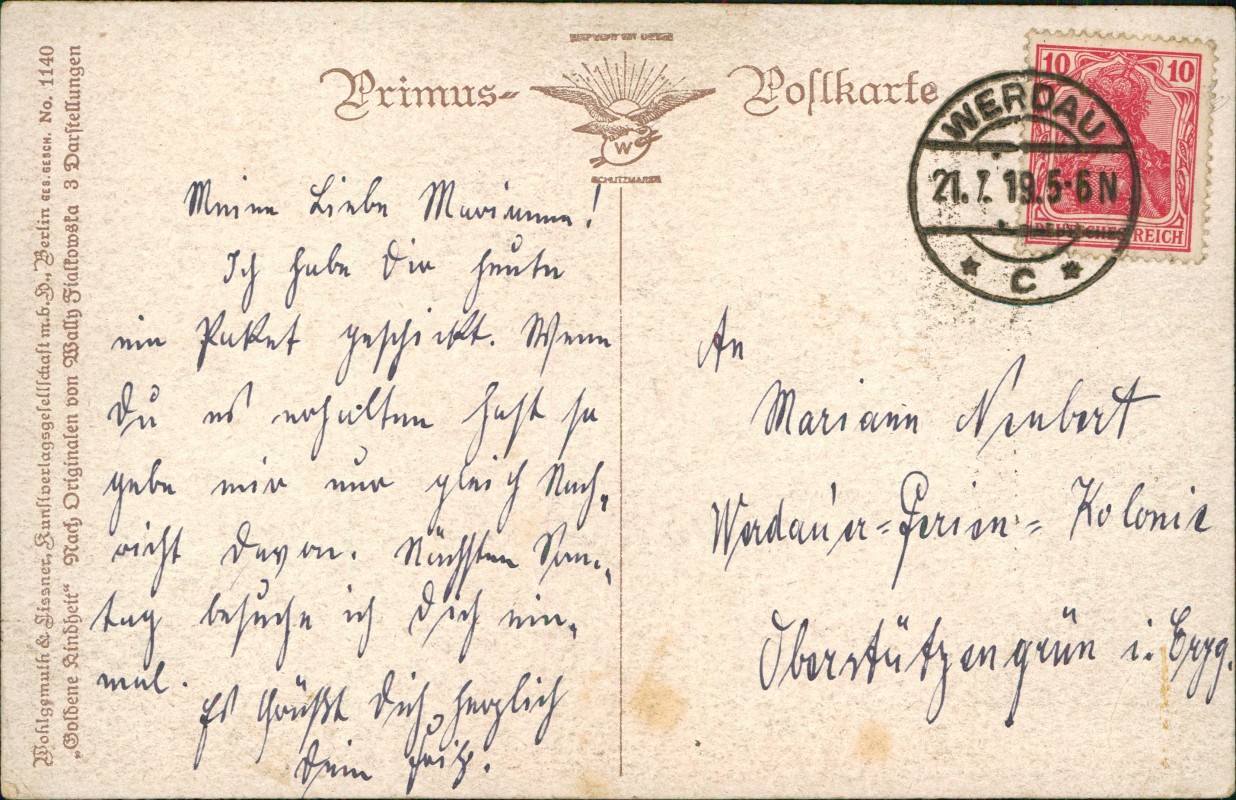 Primus- Postkarte
W
SCHUTZMARKE
10 10
DEUTSCHES REICH
WERDAU
21.7.19.5-6N
* C *
Wohlgemuth & Lissner, Kunstverlagsgesellschaft m.b.H., Berlin GES. GESCH. No. 1140
„Goldene Kindheit“ Nach Originalen von Wally Fialkowska 3 Darstellungen
Meine Liebe Marianne!
Ich habe Dir heute
ein Paket geschickt. Wenn
Du es erhalten hast so
gebe mir nur gleich Nach-
richt davon. Nächsten Son-
tag besuche ich Dich ein-
mal.
Es Grüßt Dich herzlich
Dein Fritz.
An
Mariann Neubert
Werdauer-Ferien-Kolonie
Oberstützengrün i. Erzg.